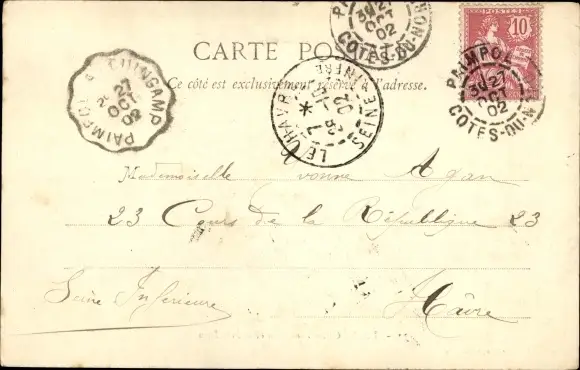 CARTE POSTALE
Ce côté est exclusivement réservé à l'adresse.
POSTES
10
PAIMPOL
3E 27
OCT
02
COTES-DU-NORD
PAIMPOL
3E 27
OCT
02
COTES-DU-N
PAIMPOL A GUINGAMP
27
OCT
02
LE HAVRE
SEINE INFRE
7
28
10
02
Mademoiselle Yvonne Agan
23 Cours de la République 23
Hâvre
Seine Inférieure